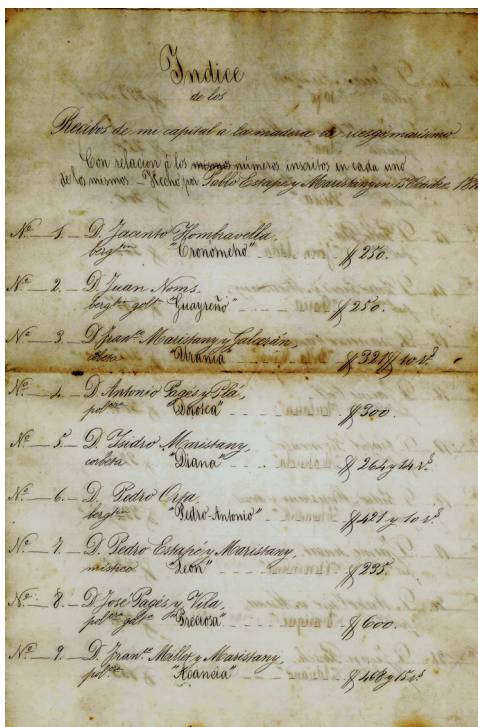 Indice
de los
Recibos de mi capital a la madera de riesgo maritimo
Con relacion á los mismos números inscritos en cada uno
de los mismos - Hecho por Pablo Estapé y Maristany en 15 Octubre
Nº 1. D. Jacinto Hombravella,
bergtin "Cronometro" $ 250.
Nº 2. D. Juan Noms.
bergtin golta "Guayreño" $ 250.
Nº 3. D. Franco Maristany y Galcerán,
"Urania" $ 321 y 10 rs
Nº 4. D. Antonio Pagés y Plá,
polcra "Dorotea" $ 300.
Nº 5. D. Isidro Maristany,
corbeta "Diana" $ 264 y 14 rs
Nº 6. D. Pedro Orta.
bergtin "Pedro-Antonio" $ 421 y 10 rs
Nº 7. D. Pedro Estapé y Maristany,
místico "Leon" $ 235.
Nº 8. D. José Pagés y Vila,
polcra golta "Preciosa" $ 600.
Nº 9. D. Franco Millet y Maristany,
polcra $ 468 y 15 rs